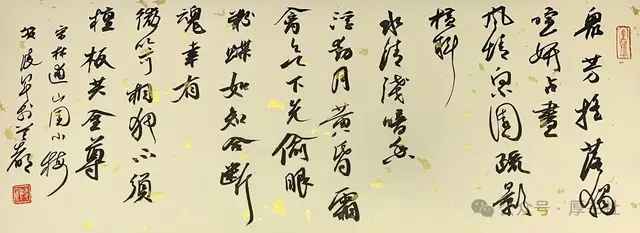 衆芳摇落獨
暄妍占盡
風情向小園疏影
横斜
水清淺暗香
浮動月黄昏霜
禽欲下先偷眼
粉蝶如知合斷
魂幸有
微吟可相狎不須
檀板共金尊
宋林逋山園小梅
公众号·厚